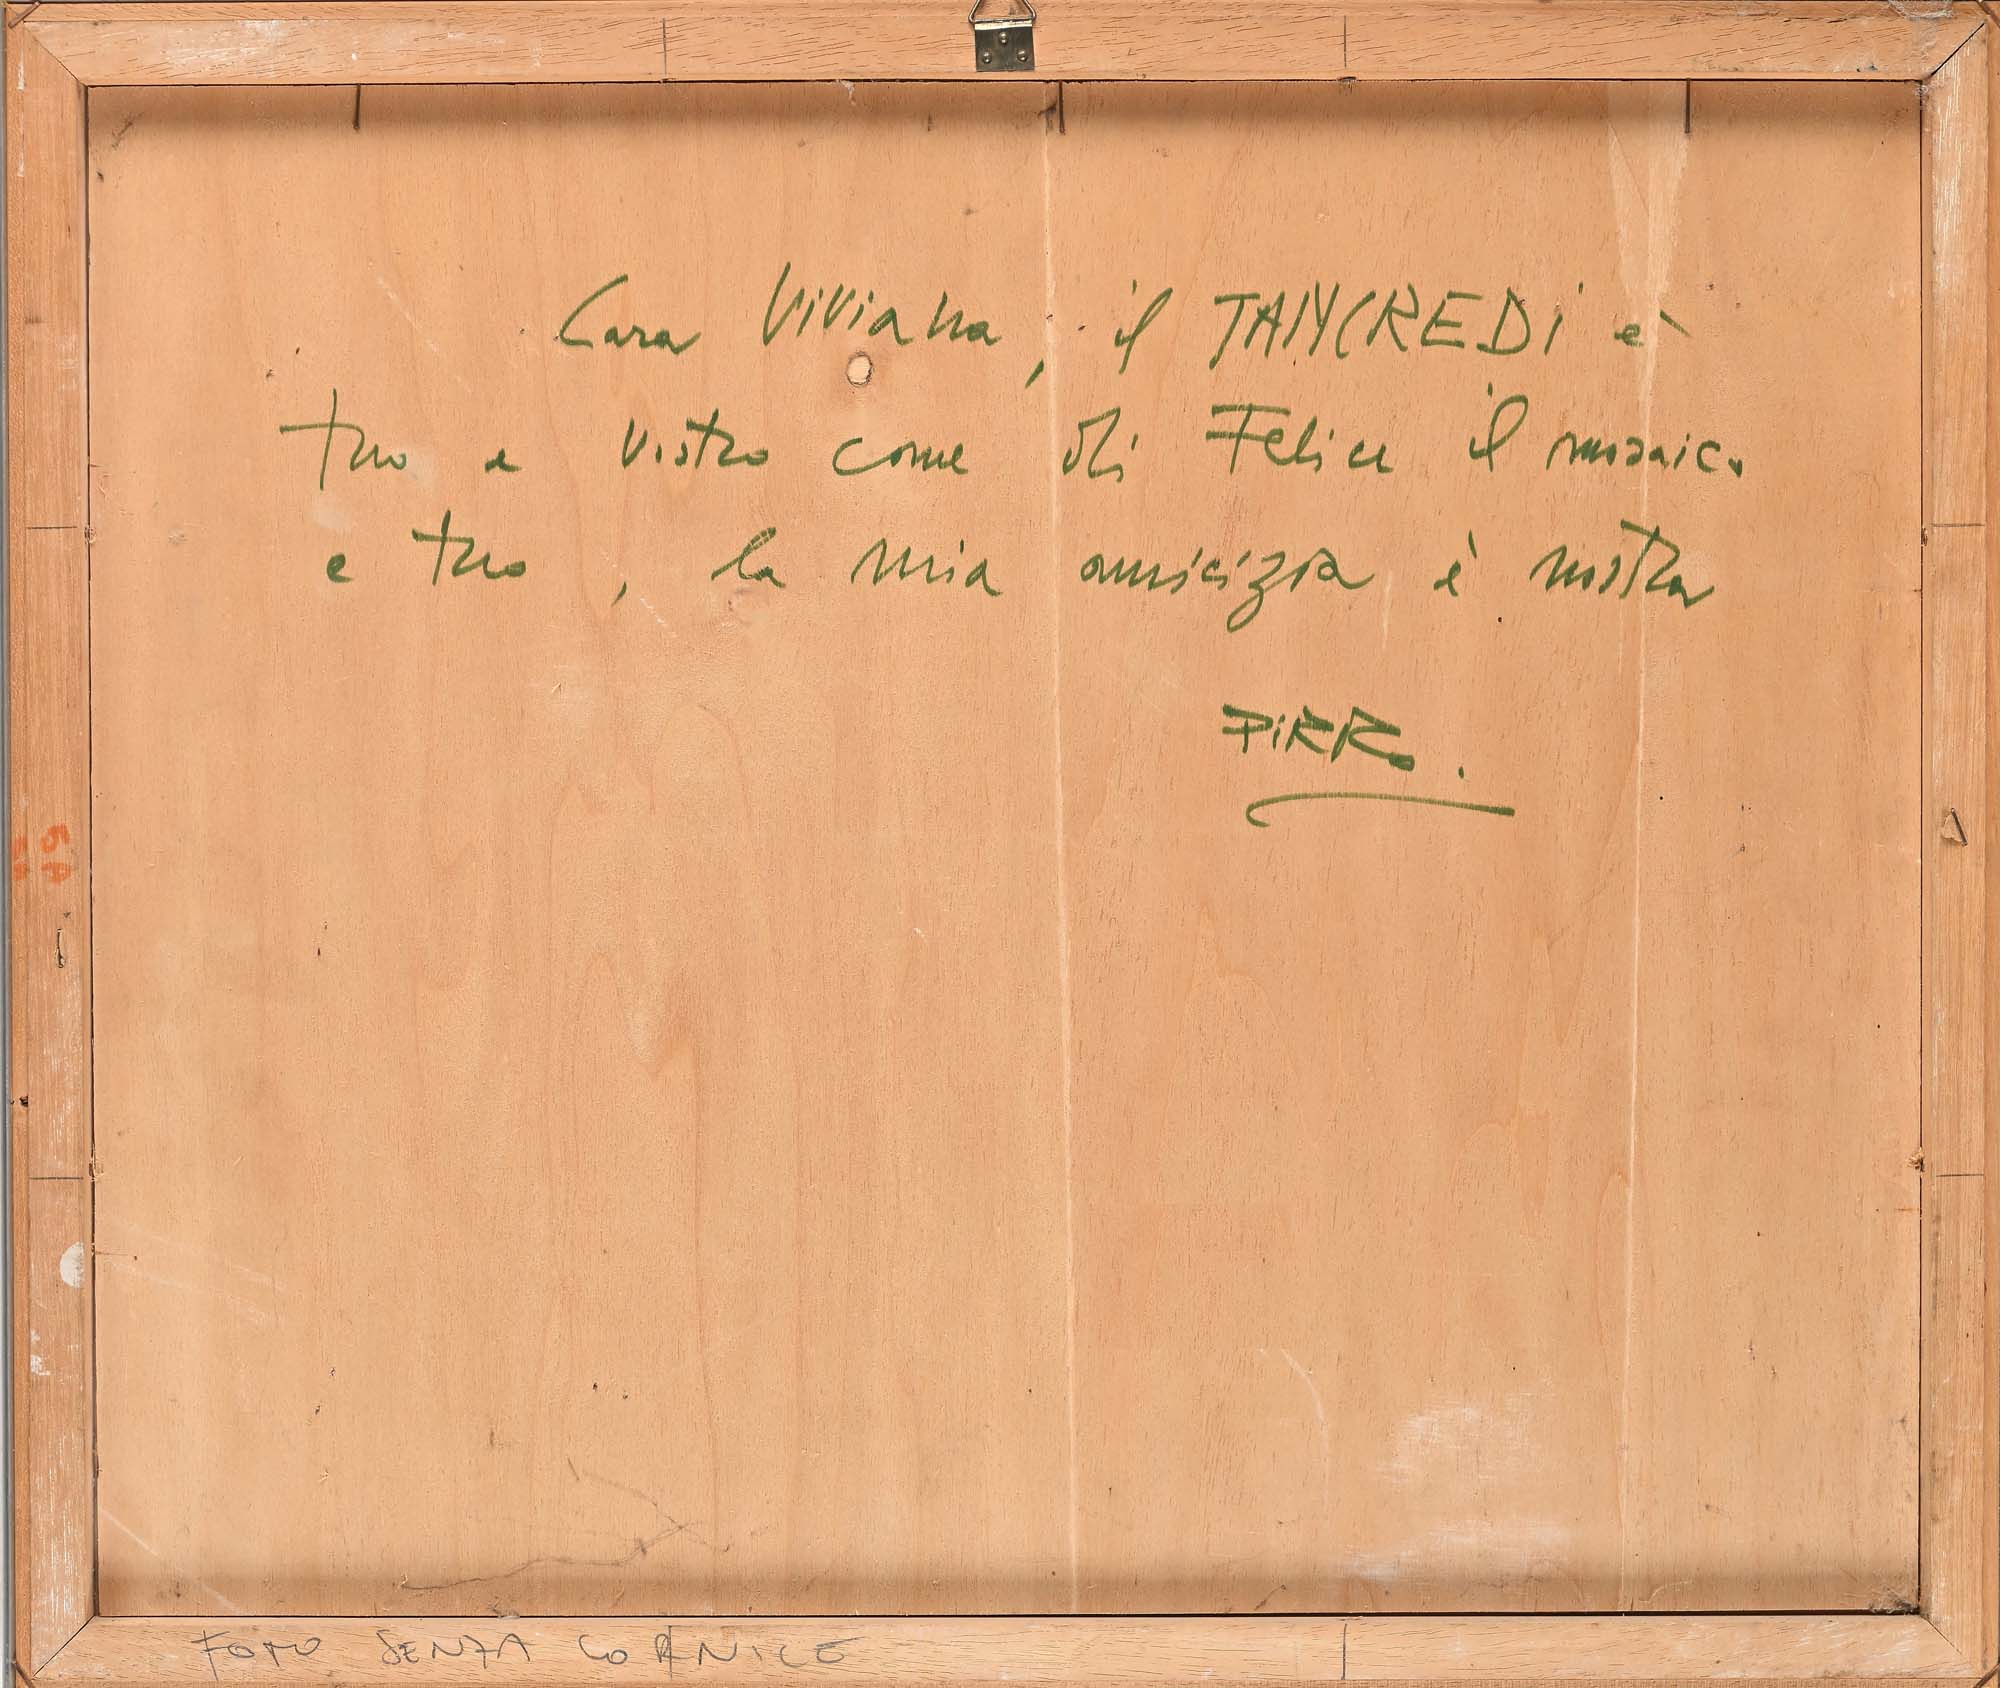 Cara Viviana, il TANCREDi è
tuo e vostro come di Felice il mosaico
e tuo, la mia amicizia è nostra
PiRRo.
5A
FOTO SENZA CORNICE